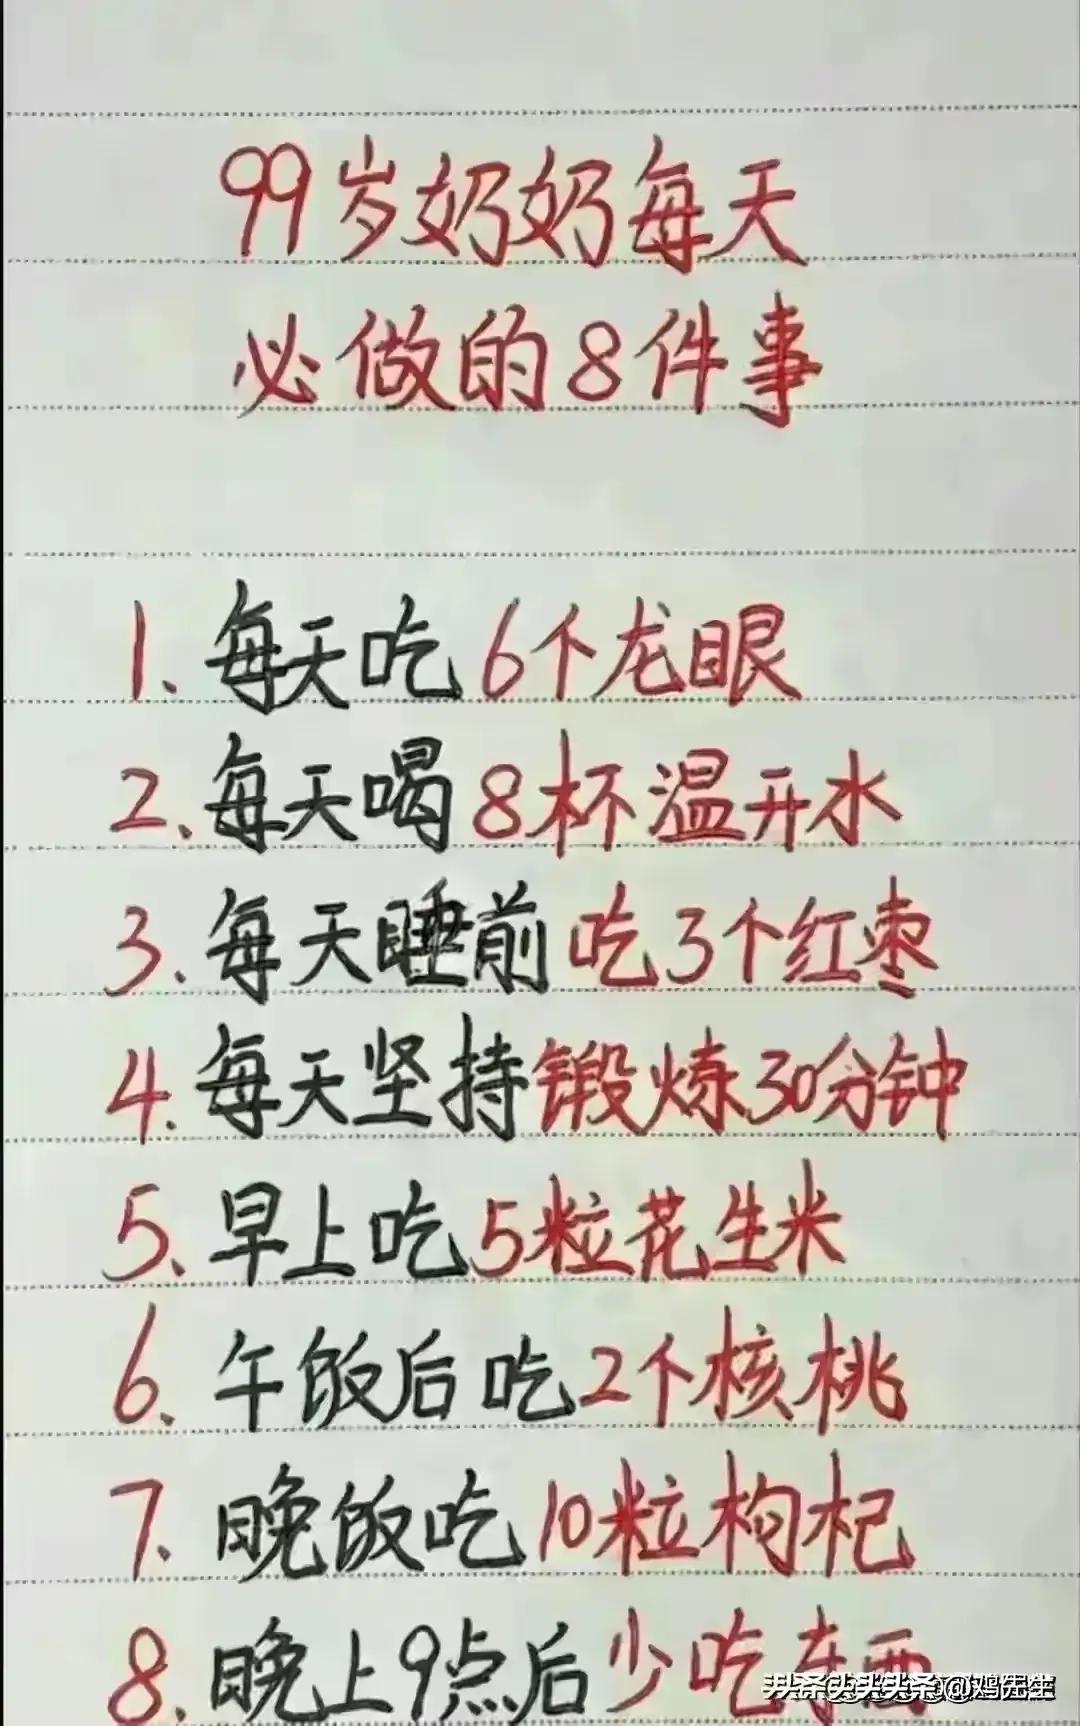 99岁奶奶每天
必做的8件事
1、每天吃6个龙眼
2、每天喝8杯温开水
3、每天睡前吃3个红枣
4、每天坚持锻炼30分钟
5、早上吃5粒花生米
6、午饭后吃2个核桃
7、晚饭吃10粒枸杞
8、晚上9点后少吃东西
头条@鸡先生